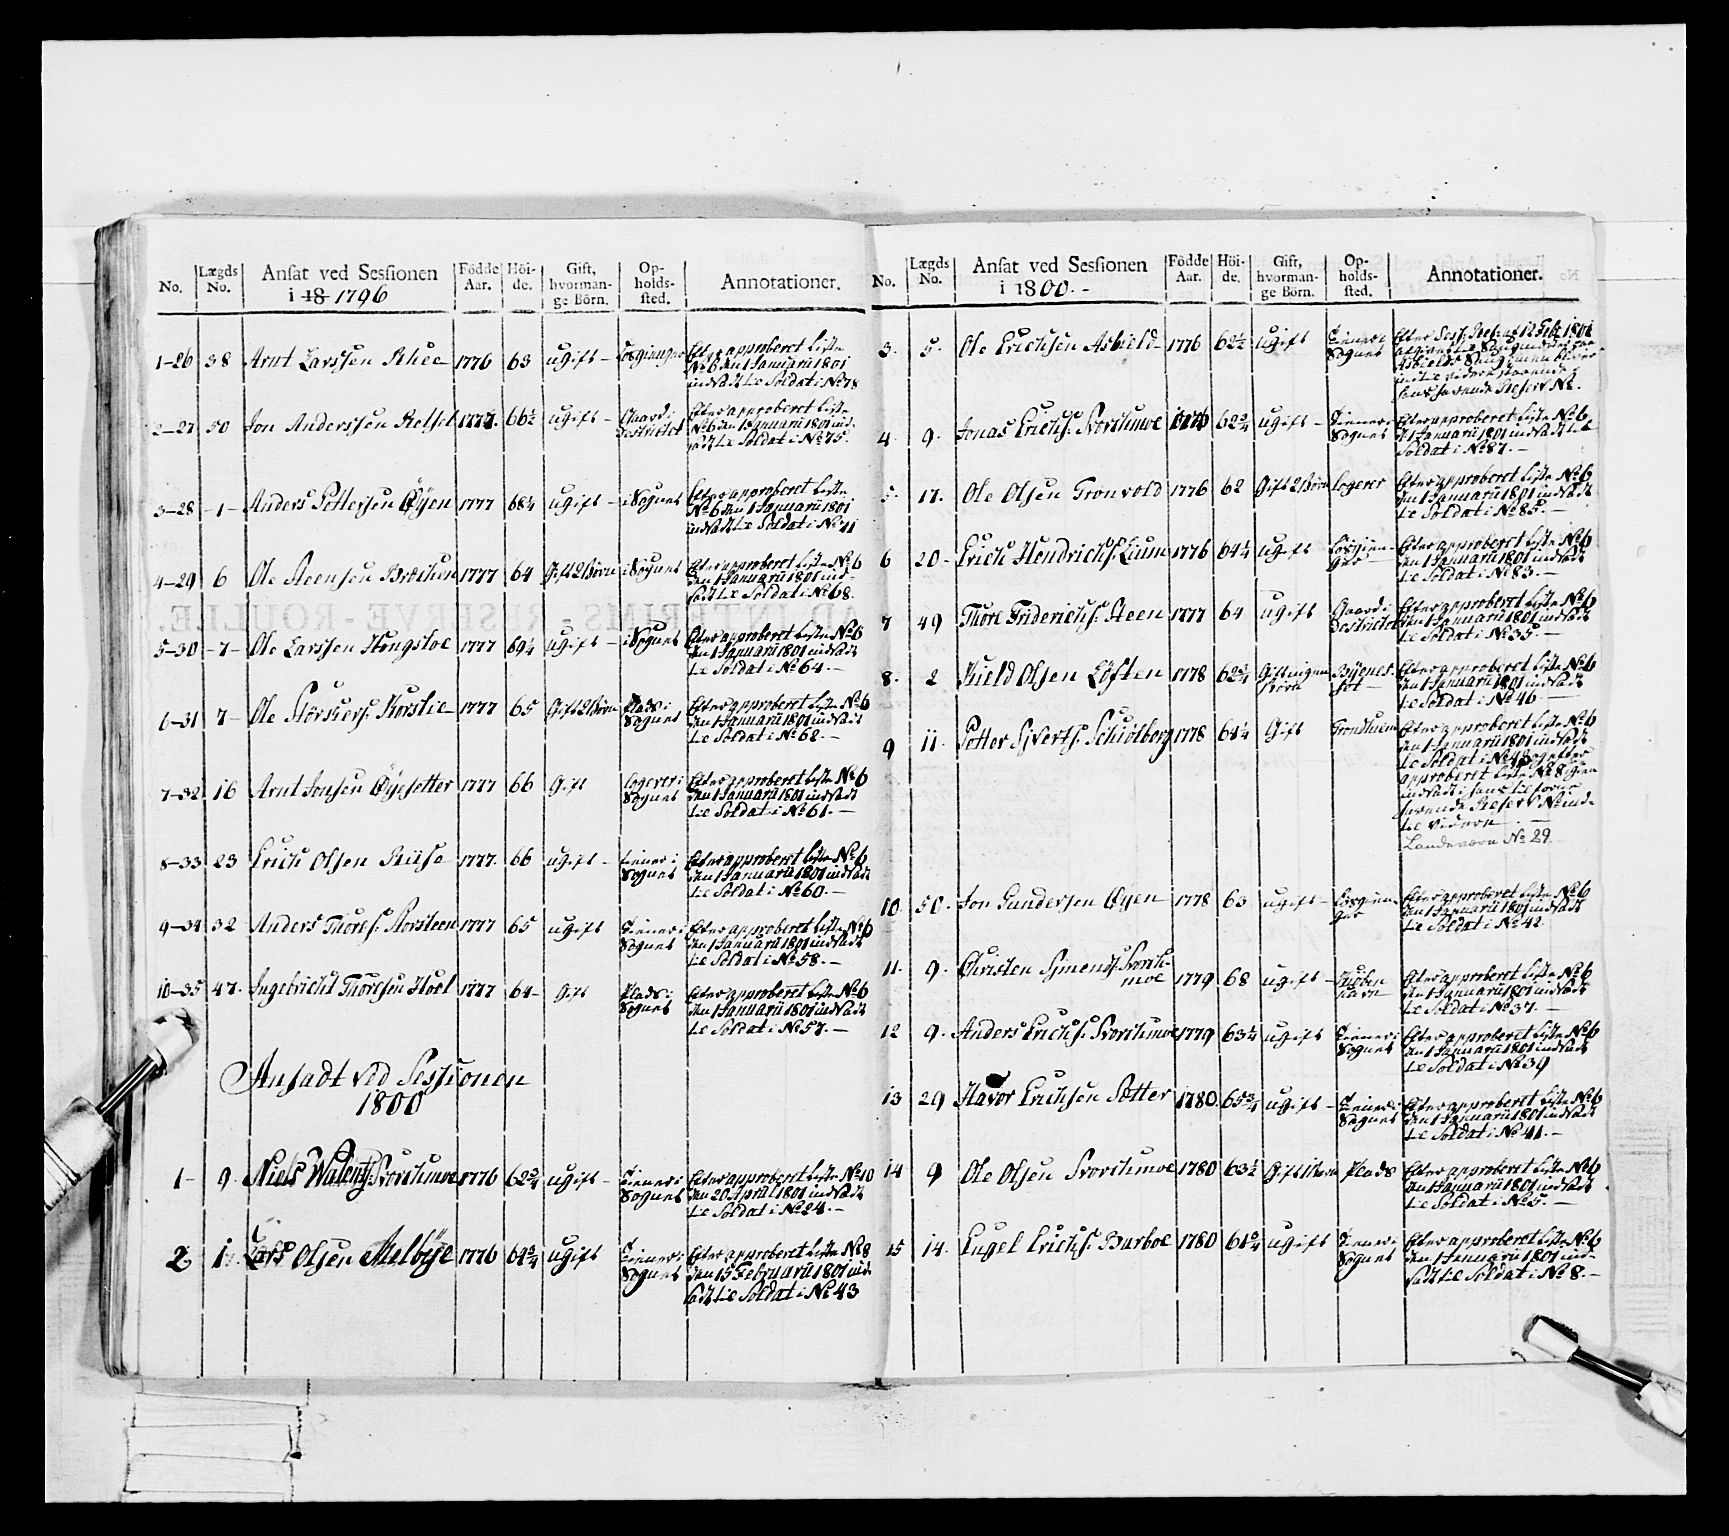 No. Lægds No. Ansat ved Sessionen i 18 1796 Födde Aar. Höi-de. Gift, hvorman-ge Börn. Op-holds-sted. Annotationer.
1-26 38 Arnt Larssen Rhee 1776 63 ugift - Losgienger Efter approberet Liste
No 6 den 1 Januarii 1801
indsadt til Soldat i No 78
2-27 50 Jon Anderssen 1777 66½ ugift - Gaard i Destrictet Efter approberet Liste
No 6 den 1 Januarii 1801 ind-
sadt til Soldat i No 75.
3-28 -1- Anders Pettersen Øyen 1777 68¼ ugift - i Sognet Efter approberet Liste
No 6 den 1 Januarii 1801
indsadt til Soldat i No 71
4-29 6 Ole Steensen 1777 64 Gift 2 Børn i Sognet Efter approberet Liste No 6
den 1 Januarii 1801 ind-
sadt til Soldat i No 68.
5-30 -7- Ole Larssen Hongsloe 1777 69¼ ugift - i Sognet Efter approberet Liste No 6
den 1 Januarii 1801 indsadt
til Soldat i No 64. -
6-31 7- Ole 1777 65 Gift 2 Børn Plads i Sognet Efter approberet Liste No 6
den 1 Januarii 1801 indsadt
til Soldat i No 62. -
7-32 16 Arnt Jonsen Øyesetter 1777 66 Gift Logerer i Sognet Efter approberet Liste No 6
den 1 Januarii 1801 indsadt
til Soldat i No 61. -
8-33 23 Erich Olsen Riise 1777. 66 ugift - tiener i Sognet Efter approberet Liste No 6
den 1 Januarii 1801 indsadt
til Soldat i No 60. -
9-34 32 Anders Thores. 1777 65 ugift Tiener i Sognet Efter approberet Liste No 6
den 1 Januarii 1801 indsadt
til Soldat i No 58. -
10-35 47. Ingebricht Thoresen Hoel 1777 64- Gift Plads i Sognet Efter approberet Liste No 6
den 1 Januarii 1801 indsadt
til Soldat i No 57. -
Ansadt ved Sessionen
1800
1- 9. Niels 1776 62¾ ugift - Tiener i Sognet Efter approberet Liste No 10
den 20 April 1801 indsadt
til Soldat i No 24. -
2 1. Lars Olsen Melbye 1776 64¾ ugift Tiener i Sognet Efter approberet Liste No 8
den 15 Februarii 1801 ind-
sadt til Soldat i No 43
No. Lægds No. Ansat ved Sessionen i 1800. - Födde Aar. Höi-de. Gift, hvorman-ge Börn. Op-holds-sted. Annotationer.
3. 5. Ole Erichsen Asbield 1776 62½ ugift Tiener i Sognet Efter 12 Febr 1801
4. 9. Jonas Erichs. Svorchmoe 1776 62¾ ugift - Tiener i Sognet Efter approberet Liste No 6
d 1 Januarii 1801 indsadt til
Soldat i No 87. -
5. 17. Ole Olsen Gronvold 1776 62 Gift 2 Børn Logerer Efter approberet Liste No 6
den 1 Januarii 1801 indsadt
til Soldat i No 85. -
6 20- Erich Hendrichs. Lium 1776 64¼ ugift Losgien-ger Efter approberet Liste No 6
den 1 Januarii 1801 indsadt
til Soldat i No 83. -
7 49 Thore Friderichs. Steen 1777 64 ugift Gaard i Destrictet Efter approberet Liste No 6
den 1 Januarii 1801 indsadt
til Soldat i No 35. -
8. 2 Kield Olsen Løften 1778 62¾ Gift ingen Børn Efter approberet Liste No 6
den 1 Januarii 1801 indsadt
til Soldat i No 46 -
9 11. Petter Siverts. Schiøtberg 1778 64¼ Gift Trondhiem Efter approberet Liste No 6
den 1 Januarii 1801 indsadt
til Soldat i No og efter
approberet Liste No 8 igien
indsadt i sans til forne
havende Reserv No ind-
til videre. -
Landeværn No 29
10. 50. Jon Gundersen Øyen 1778 63 ugift - Losgien-ger Efter approberet Liste No 6
den 1 Januarii 1801 indsadt
til Soldat i No 42.
11. 9. Christen Simens. Svorch-
moe 1779 68 ugift - Kiøben-havn Efter approberet Liste No 6
den 1 Januarii 1801 indsadt
til Soldat i No 37. -
12 9. Anders Erichs. Svorchmoe 1779 63¼ ugift Tiener i Sognet Efter approberet Liste No 6
den 1 Januarii 1801 indsadt
til Soldat i No 39
13 29 Havor Erichsen Sætter 1780. 65¾ ugift - Tiener i Sognet Efter approberet Liste No 6
den 1 Januarii 1801 indsadt
til Soldat i No 41. -
14 9 Ole Olsen Svorchmoe 1780 63½ Gift 1 Barn Plads Efter approberet Liste No 6
den 1 Januarii 1801 indsadt
til Soldat i No 5. -
15 14. Engel Erichs. Barboe 1780 61¾ ugift Tiener i Sognet Efter approberet Liste No 6
den 1 Januarii 1801 ind-
sadt til Soldat i No 8. -